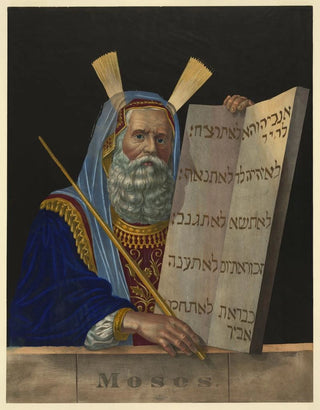 אנכי יהוה א לא תרצח:
להיך
לא יהיה לך לא תנאף:
לא תשא לא תגנב:
זכור את יום לא תענה
כבד את לא תחמד
אביך
Moses.